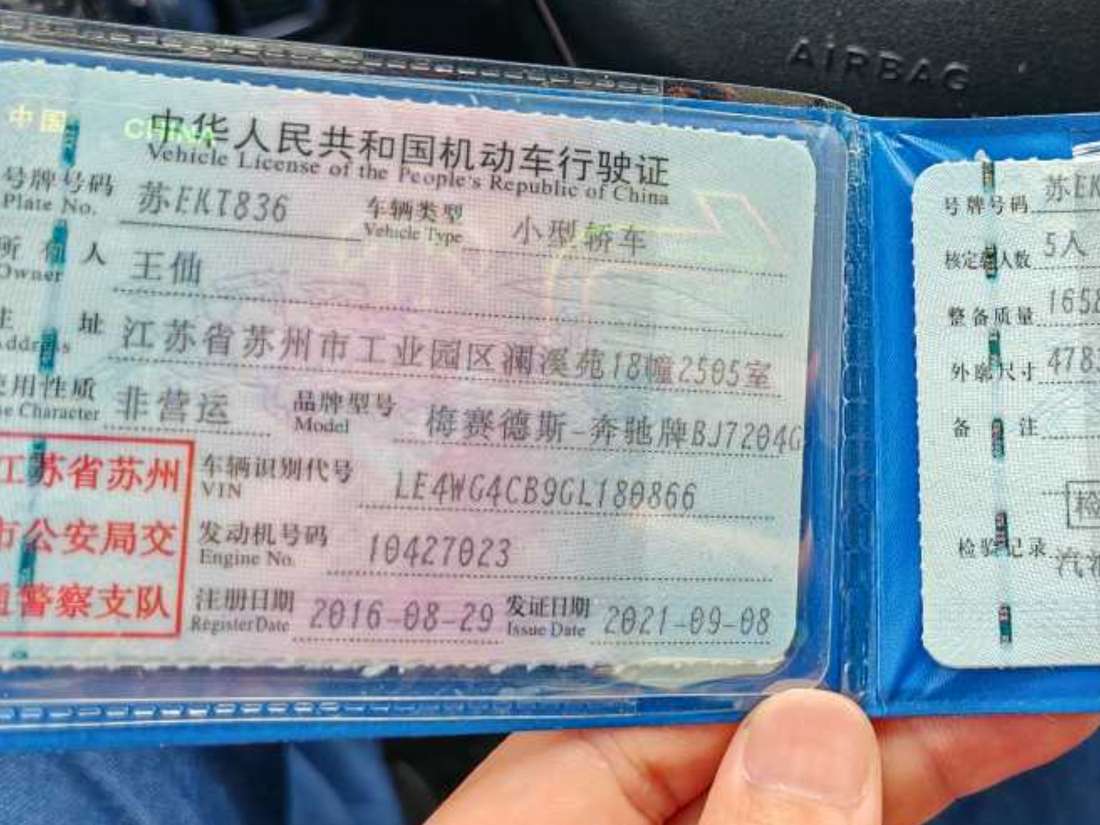 AIRBAG
中国 CHINA
中华人民共和国机动车行驶证
Vehicle License of the People's Republic of China
号牌号码 苏EKT836 车辆类型 小型轿车
Plate No. Vehicle Type
所有人 王仙
Owner
址 江苏省苏州市工业园区澜溪苑18幢2505室
Address
使用性质 非营运 品牌型号 梅赛德斯-奔驰牌BJ7204G
Character Model
江苏省苏州
市公安局交
通警察支队
车辆识别代号 LE4WG4CB9GL180866
VIN
发动机号码 10427023
Engine No.
注册日期 2016-08-29 发证日期 2021-09-08
Register Date Issue Date
号牌号码 苏EK
核定载人数 5人
整备质量 165
外廓尺寸 478
备注
检
检验记录 汽油